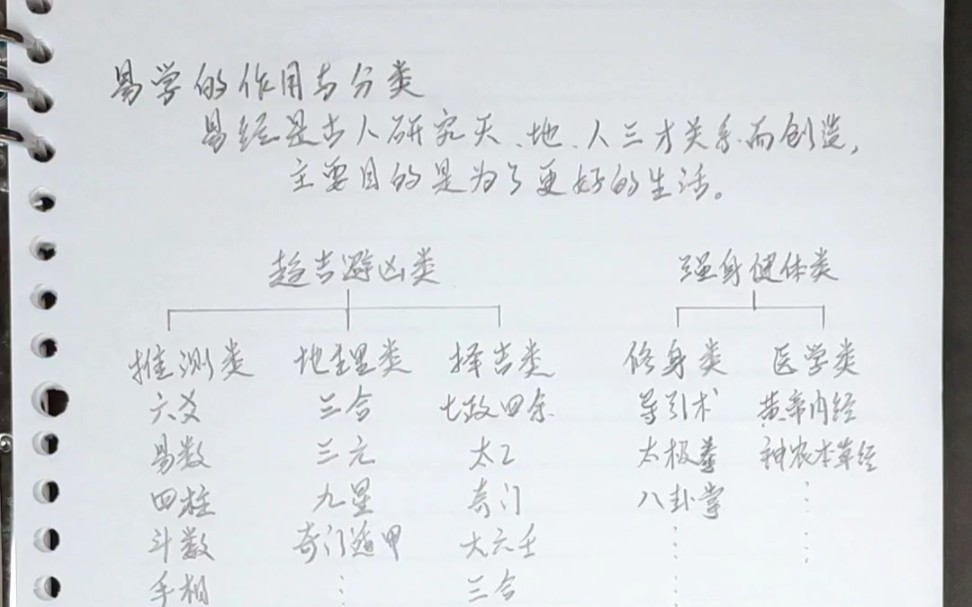 易学的作用与分类
易经是古人研究天、地、人三才关系而创造,
主要目的是为了更好的生活。
趋吉避凶类 强身健体类
推测类 地理类 择吉类 修身类 医学类
六爻 三合 七政四余 导引术 黄帝内经
易数 三元 太乙 太极拳 神农本草经
四柱 九星 奇门 八卦掌 ⋮
斗数 奇门遁甲 大六壬 ⋮ ⋮
手相 ⋮ 三合 ⋮